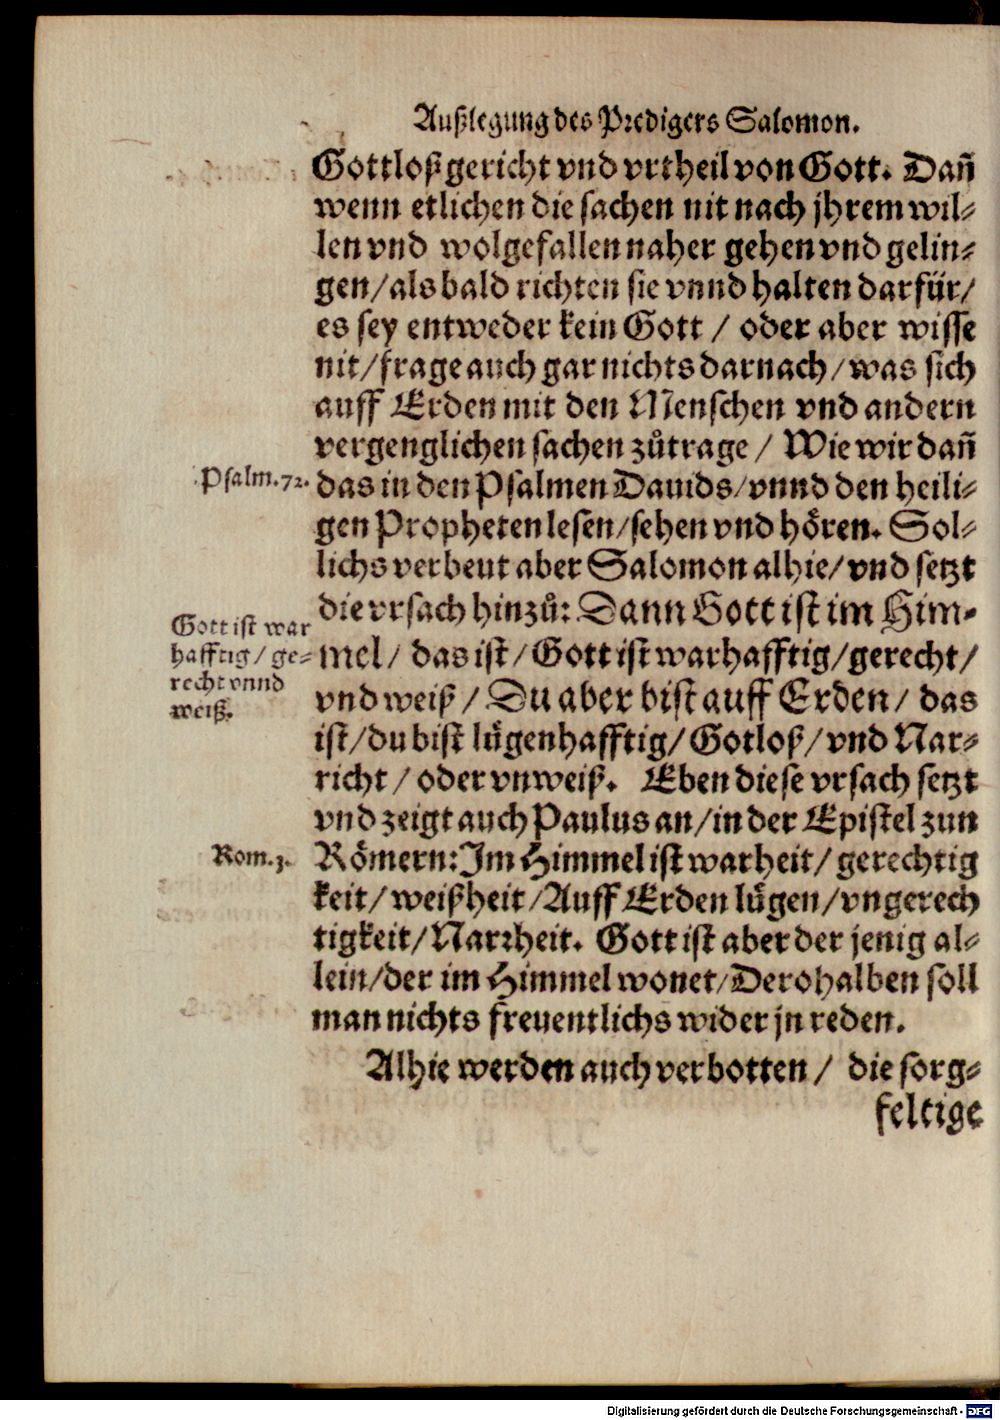 Außlegung des Predigers Salomon.
Gottloß gericht vnd vrtheil von Gott. Dañ
wenn etlichen die sachen nit nach jhrem wil⸗
len vnd wolgefallen naher gehen vnd gelin⸗
gen/als bald richten sie vnnd halten darfür/
es sey entweder kein Gott / oder aber wisse
nit/frage auch gar nichts darnach/was sich
auff Erden mit den Menschen vnd andern
vergenglichen sachen zůtrage / Wie wir dañ
Psalm.72.
das in den Psalmen Dauids/vnnd den heili⸗
gen Propheten lesen/sehen vnd hören. Sol⸗
lichs verbeut aber Salomon alhie/vnd setzt
die vrsach hinzů: Dann Gott ist im Him⸗
Gott ist war
hafftig/ ge⸗
recht vnnd
weiß.
mel/ das ist/ Gott ist warhafftig/gerecht/
vnd weiß / Du aber bist auff Erden/ das
ist/du bist lügenhafftig/ Gotloß/vnd Nar⸗
richt / oder vnweiß. Eben diese vrsach setzt
vnd zeigt auch Paulus an/in der Epistel zun
Rom.3.
Römern: Im Himmel ist warheit/ gerechtig
keit/ weißheit/Auff Erden lügen/vngerech
tigkeit/Narꝛheit. Gott ist aber der jenig al⸗
lein/der im Himmel wonet/Derohalben soll
man nichts freuentlichs wider jn reden.
Alhie werden auch verbotten / die sorg⸗
feltige
Digitalisierung gefördert durch die Deutsche Forschungsgemeinschaft - DFG